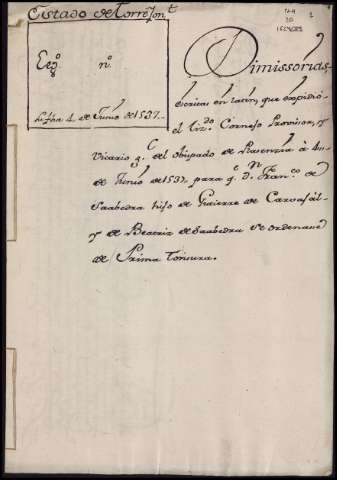 Estado de Torrejon.t
Leg.o n.o
fecha 4 de Junio de 1537.
1
Dimissorias,
escritas en latin, que expidió
el Liz.do Cornejo Provisor, y
Vicario g. del Obispado de Plasenzia à 4
de Junio de 1537 para q.e D.n Fran.co de
Saabedra hijo de Gutierre de Carvajal
y de Beatriz de Saabedra se ordenase
de Prima Tonsura.